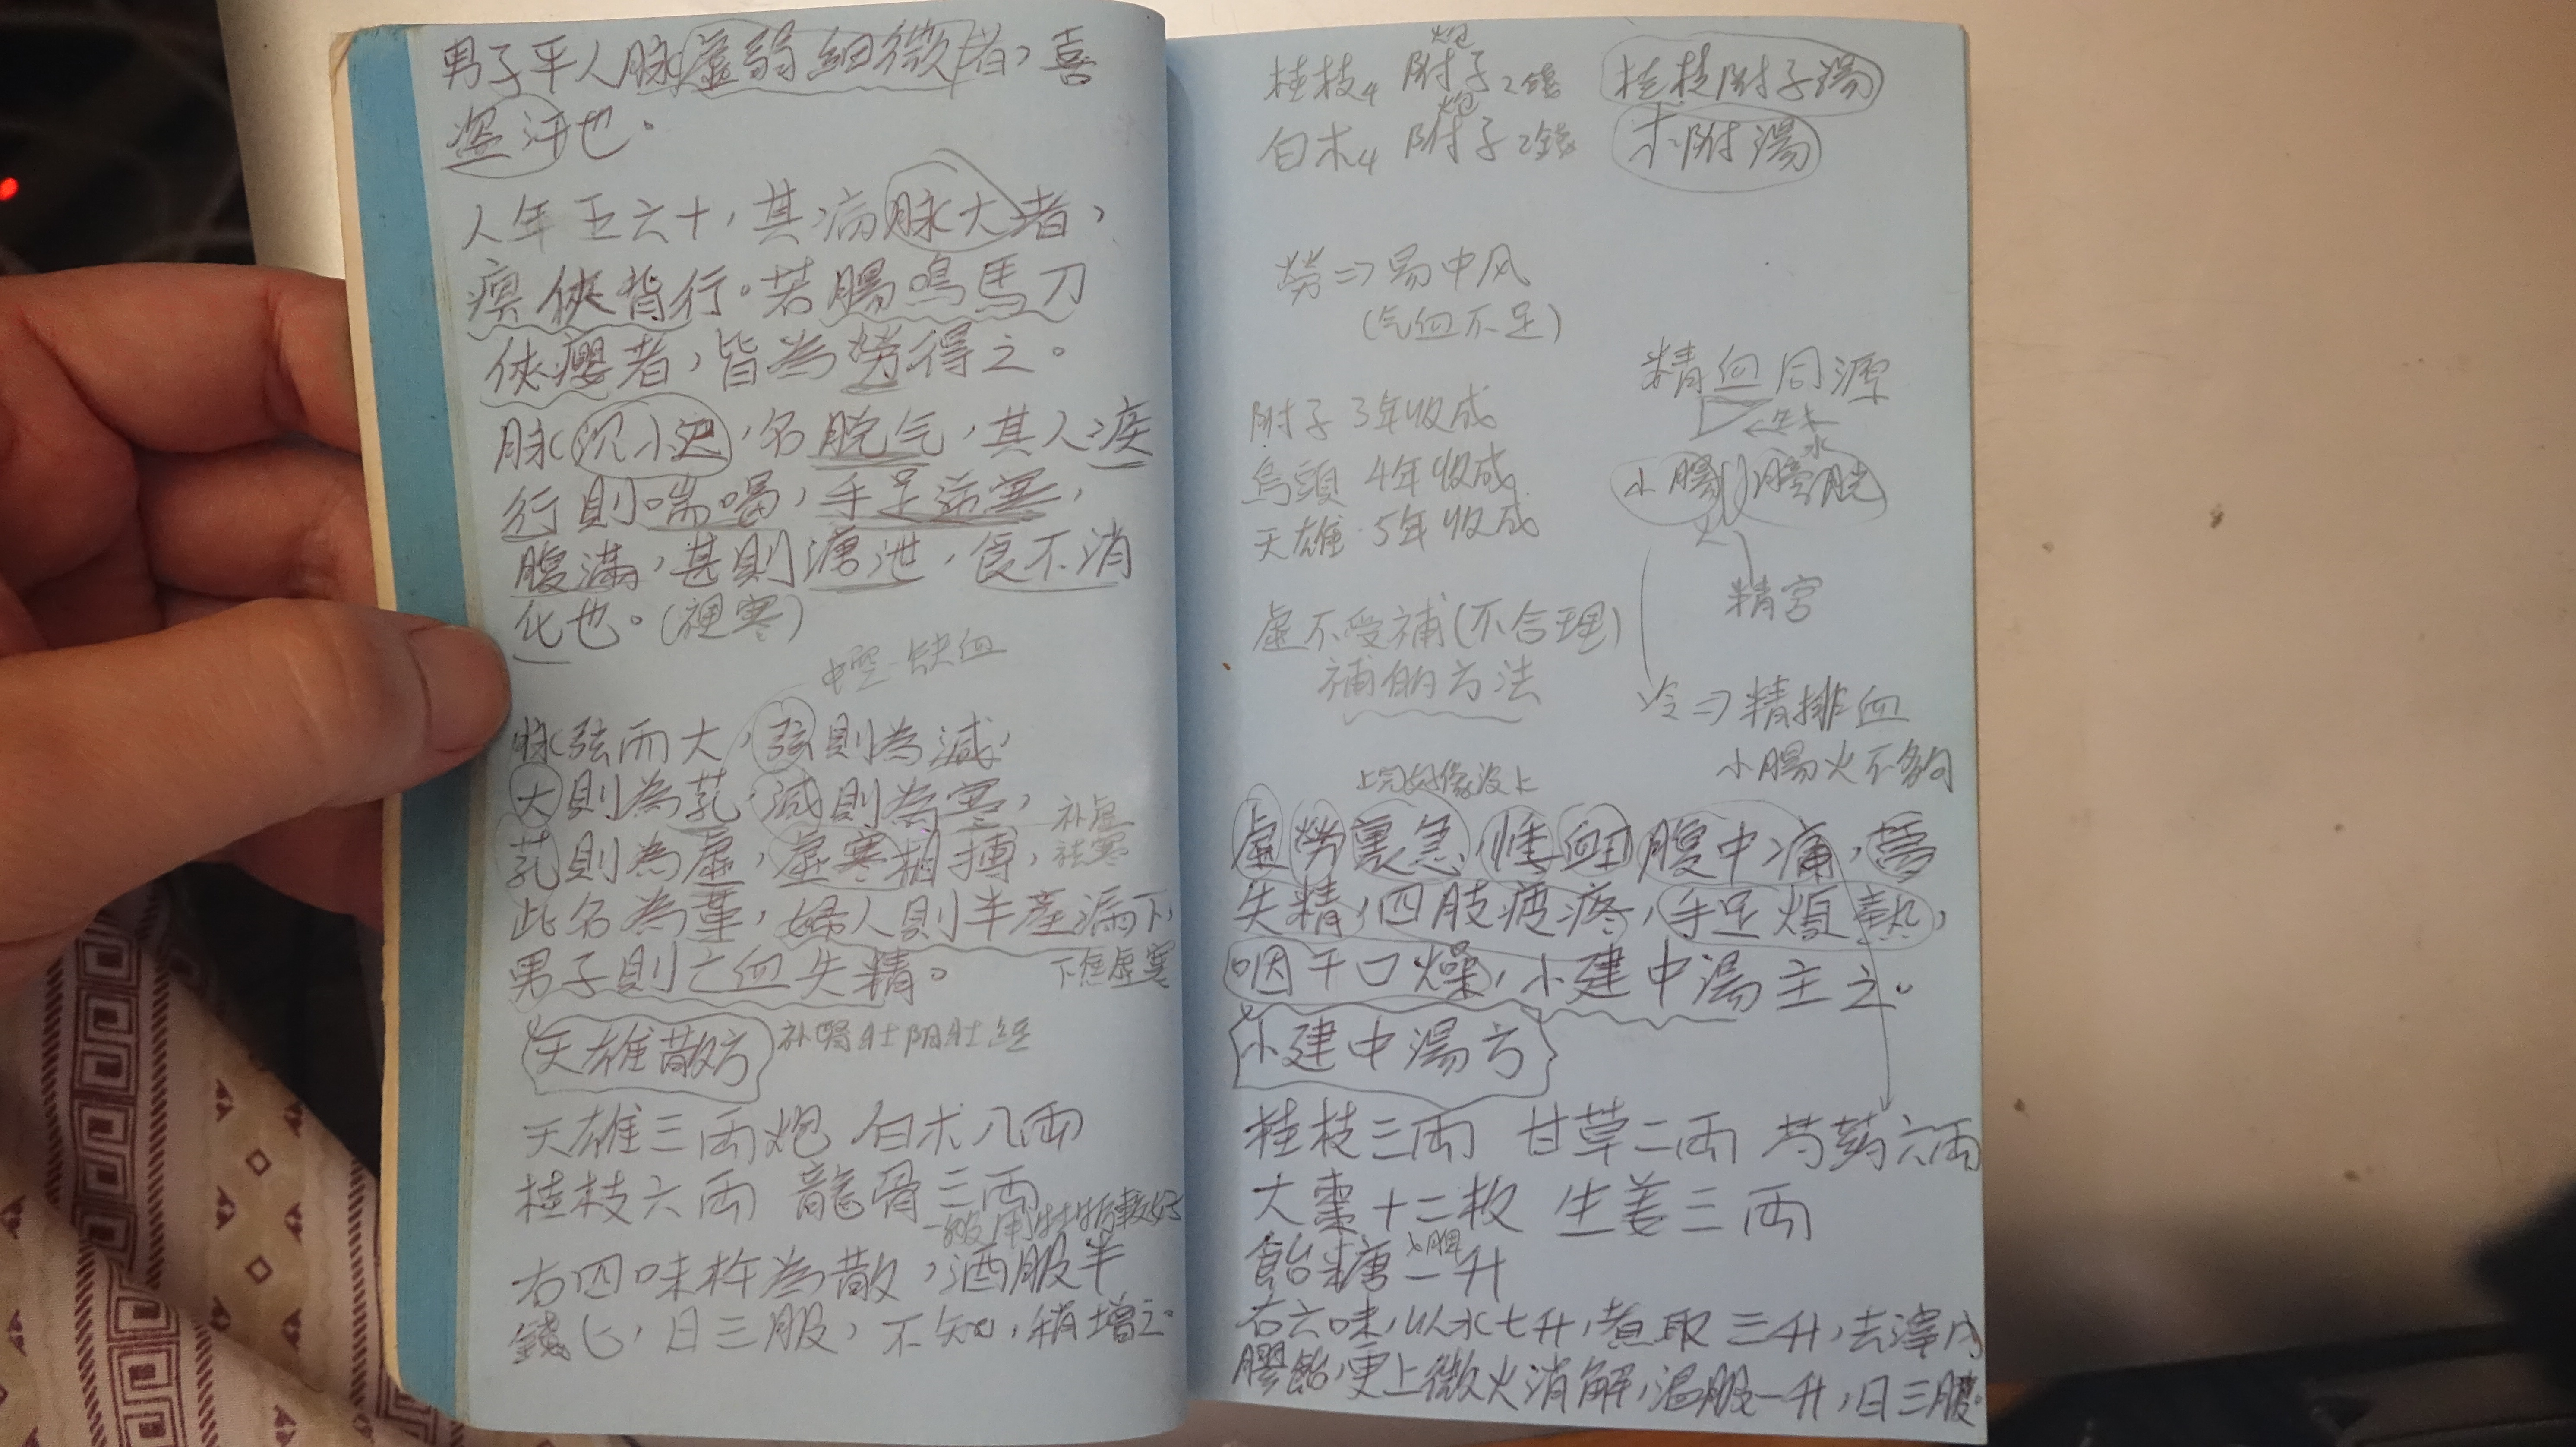 男子平人脉虛弱細微者，喜
盜汗也。
人年五六十，其病脉大者，
痹俠背行。若腸鳴馬刀
俠癭者，皆為勞得之。
脉沉小迟，名脱气，其人疾
行則喘喝，手足逆寒，
腹滿，甚則溏泄，食不消
化也。(裡寒)
中空 缺血
脉弦而大，弦則為減，
大則為芤，減則為寒，
芤則為虛，虛寒相搏，
补虛
祛寒
此名為革，婦人則半產漏下，
男子則亡血失精。
下焦虛寒
天雄散方 补腎壯阴壯
天雄三兩炮 白朮八兩
桂枝六兩 龍骨三兩
一般用牡蛎較好
右四味杵為散，酒服半
錢匕，日三服，不知，稍增之。
桂枝4 附子炮2錢 桂枝附子湯
白朮4 附子炮2錢 朮附湯
勞⇒易中风
(气血不足)
精血同源
附子 3年收成
烏頭 4年收成
天雄 5年收成
水
小腸 膀胱
火
精宮
虛不受補(不合理)
補的方法
冷⇒精排血
小腸火不夠
上完好像沒上
虛勞裏急，悸衄腹中痛，夢
失精，四肢痠疼，手足煩熱，
咽干口燥，小建中湯主之。
小建中湯方
桂枝三兩 甘草二兩 芍药六兩
大棗十二枚 生姜三兩
飴糖一升
右六味，以水七升，煮取三升，去滓内
膠飴，更上微火消解，温服一升，日三服。